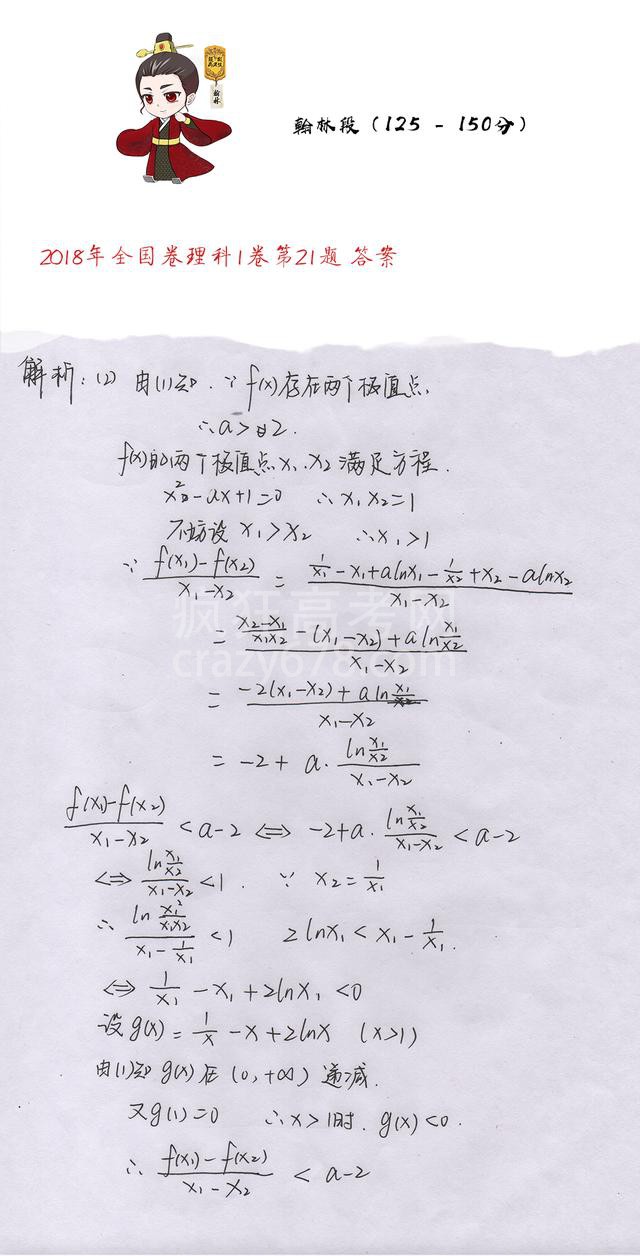 翰林
翰林段（125 - 150分）
2018年全国卷理科1卷第21题 答案
解析：(2) 由(1)知．∵ f(x)存在两个极值点，
∴ a＞2．
f(x)的两个极值点x₁、x₂满足方程．
x²-ax+1=0 ∴ x₁x₂=1
不妨设 x₁＞x₂ ∴ x₁＞1
∵ (f(x₁)-f(x₂))/(x₁-x₂) = (1/x₁-x₁+alnx₁-1/x₂+x₂-alnx₂)/(x₁-x₂)
= ((x₂-x₁)/(x₁x₂)-(x₁-x₂)+aln(x₁/x₂))/(x₁-x₂)
= (-2(x₁-x₂)+aln(x₁/x₂))/(x₁-x₂)
= -2+a·(ln(x₁/x₂))/(x₁-x₂)
(f(x₁)-f(x₂))/(x₁-x₂) < a-2 ⟺ -2+a·(ln(x₁/x₂))/(x₁-x₂) < a-2
⟺ (ln(x₁/x₂))/(x₁-x₂) < 1． ∵ x₂=1/x₁
∴ (ln(x₁²/(x₁x₂)))/(x₁-1/x₁) < 1 2lnx₁ < x₁-1/x₁．
⟺ 1/x₁-x₁+2lnx₁ < 0
设g(x)=1/x-x+2lnx (x>1)
由(1)知 g(x)在(0,+∞)递减．
又g(1)=0 ∴ x>1时．g(x)<0．
∴ (f(x₁)-f(x₂))/(x₁-x₂) < a-2
疯狂高考网
crazy678.com